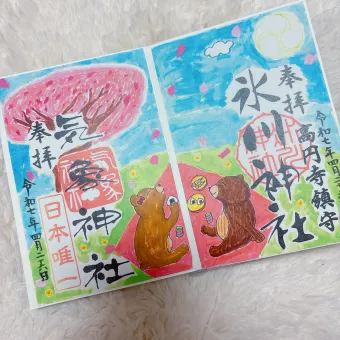 奉拝
高円寺鎮守
氷川神社
令和七年四月
気象神社
奉拝
日本唯一
令和七年四月二六日